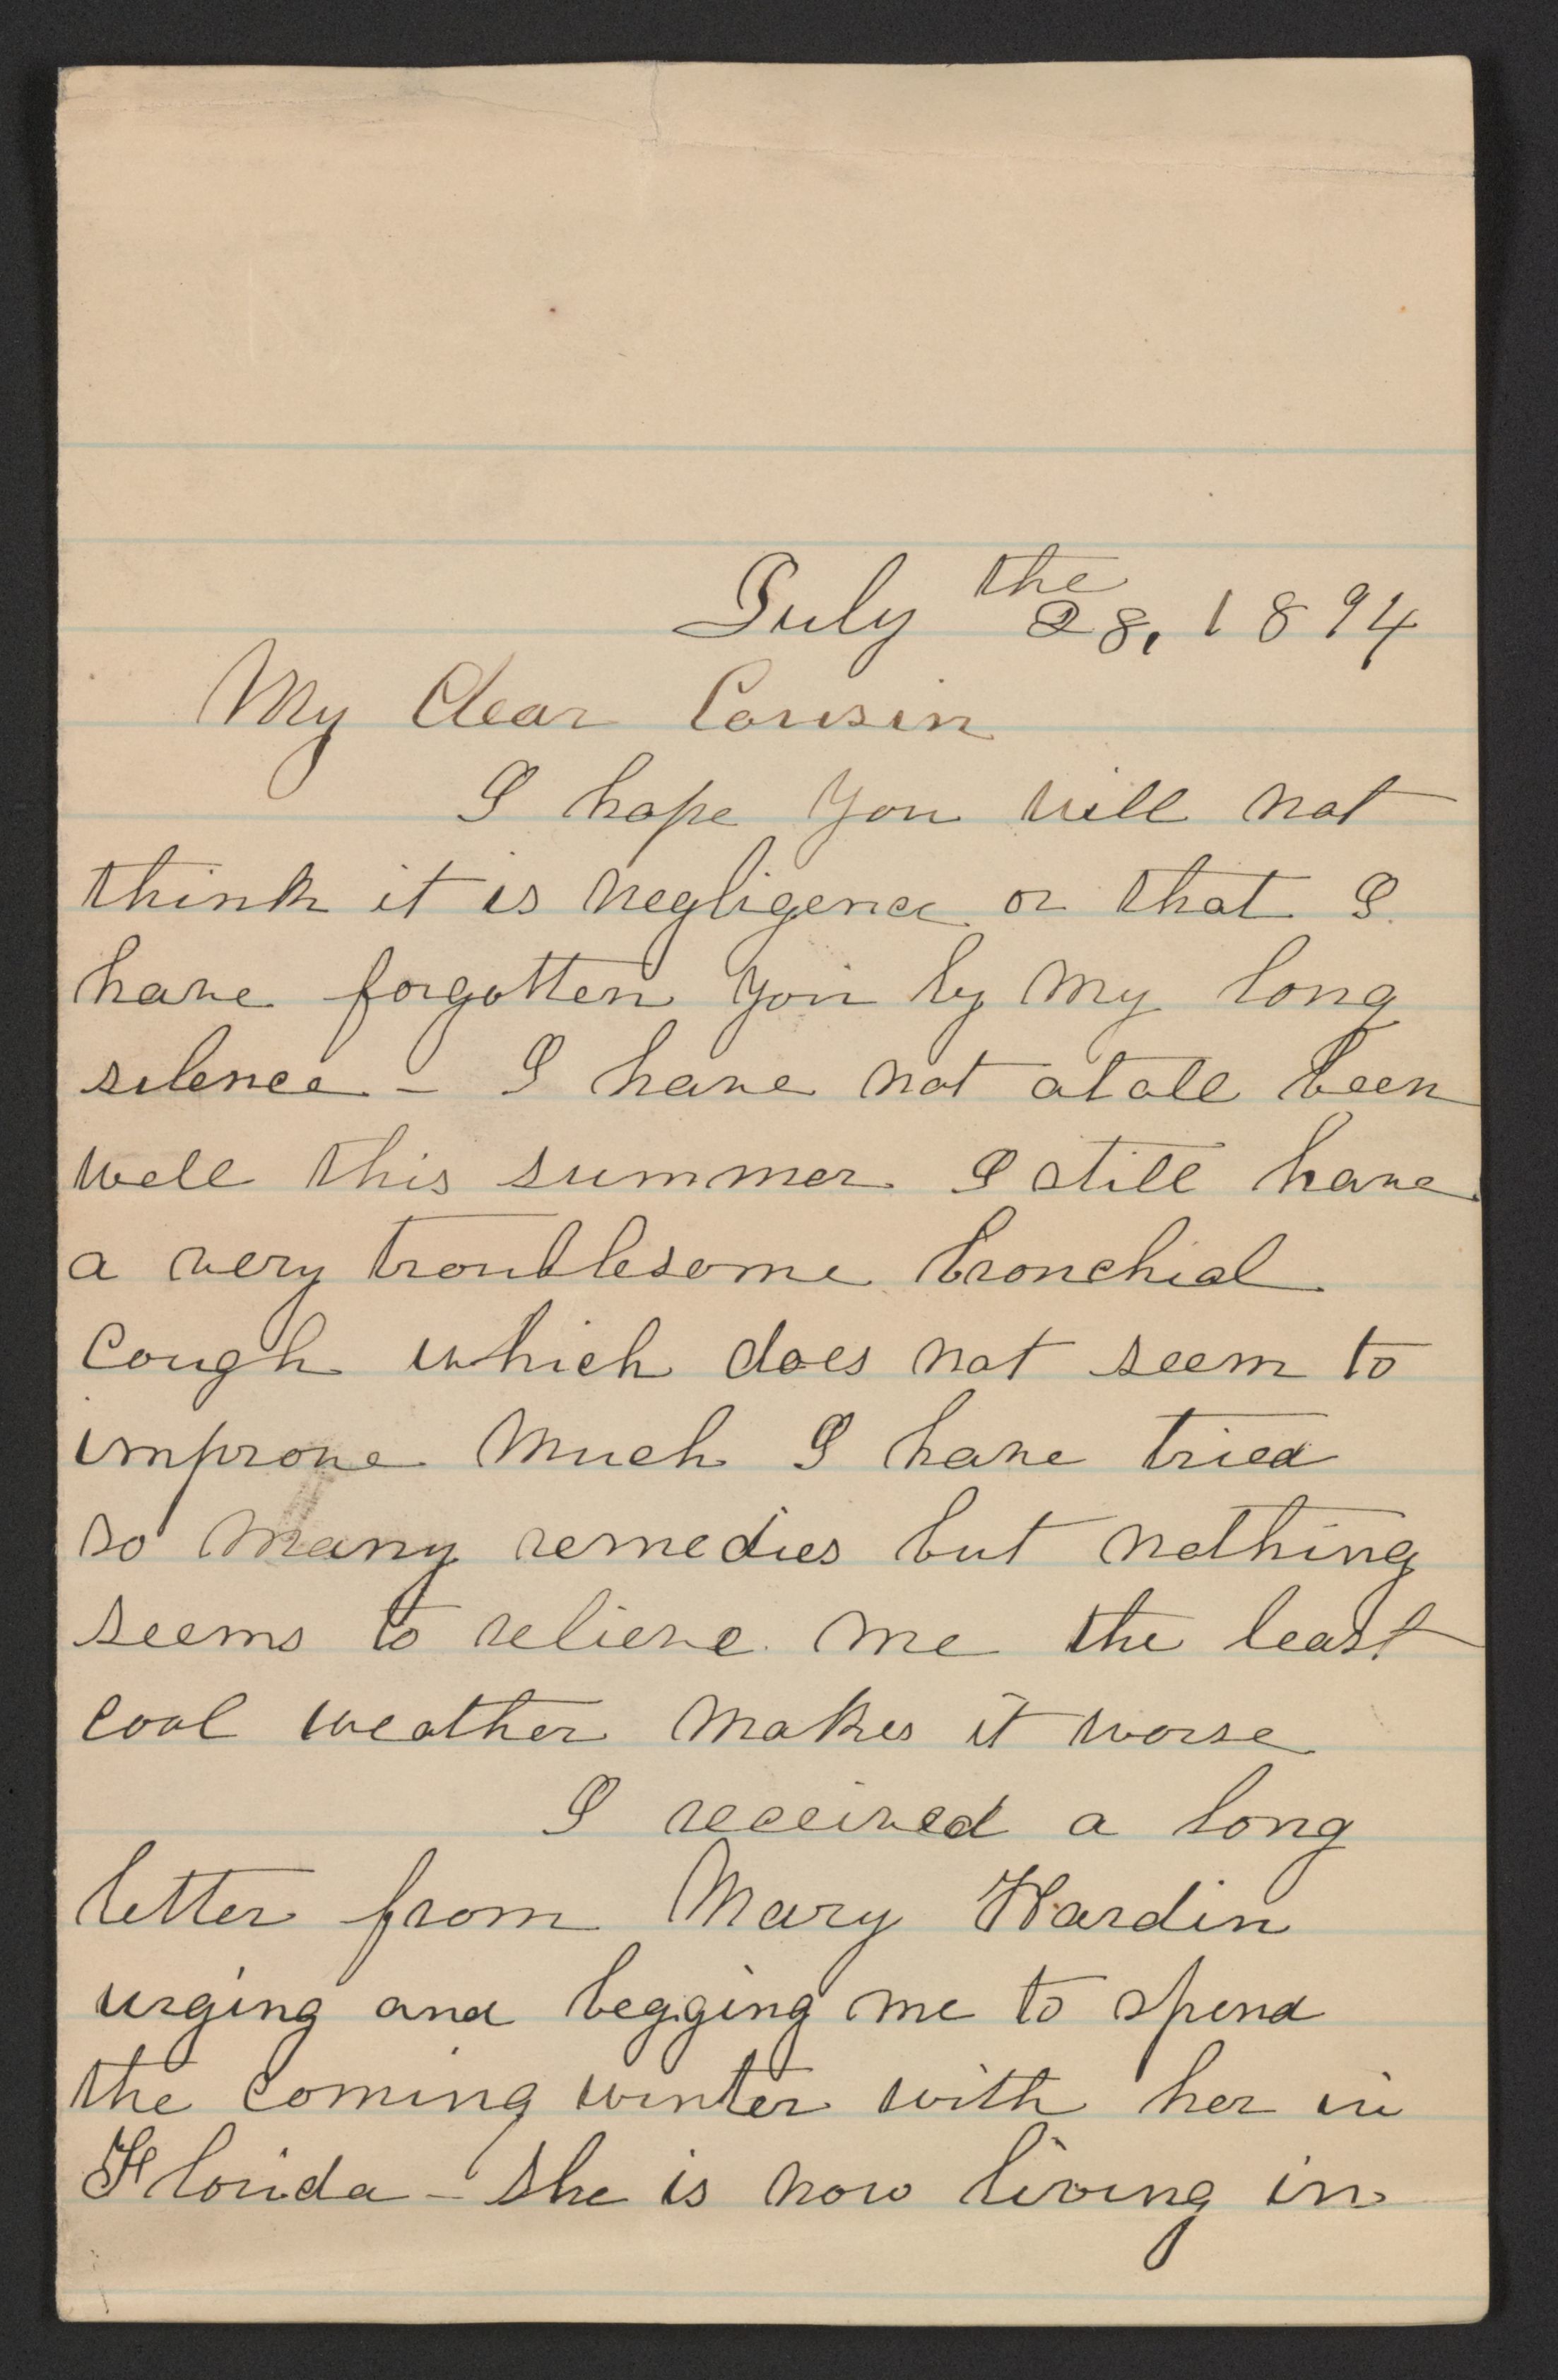 July the 28, 1894
My Dear Cousin
I hope you will not
think it is negligence or that I
have forgotten you by my long
silence - I have not atall been
well this summer I still have
a very troublesome bronchial
cough which does not seem to
improve much I have tried
so many remedies but nothing
seems to relieve me the least
cool weather makes it worse
I received a long
letter from Mary Hardin
urging and begging me to spend
the coming winter with her in
Florida - she is now living in